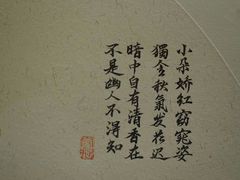 小朶娇紅窈窕姿
獨含秋氣发花迟
暗中自有清香在
不是幽人不得知